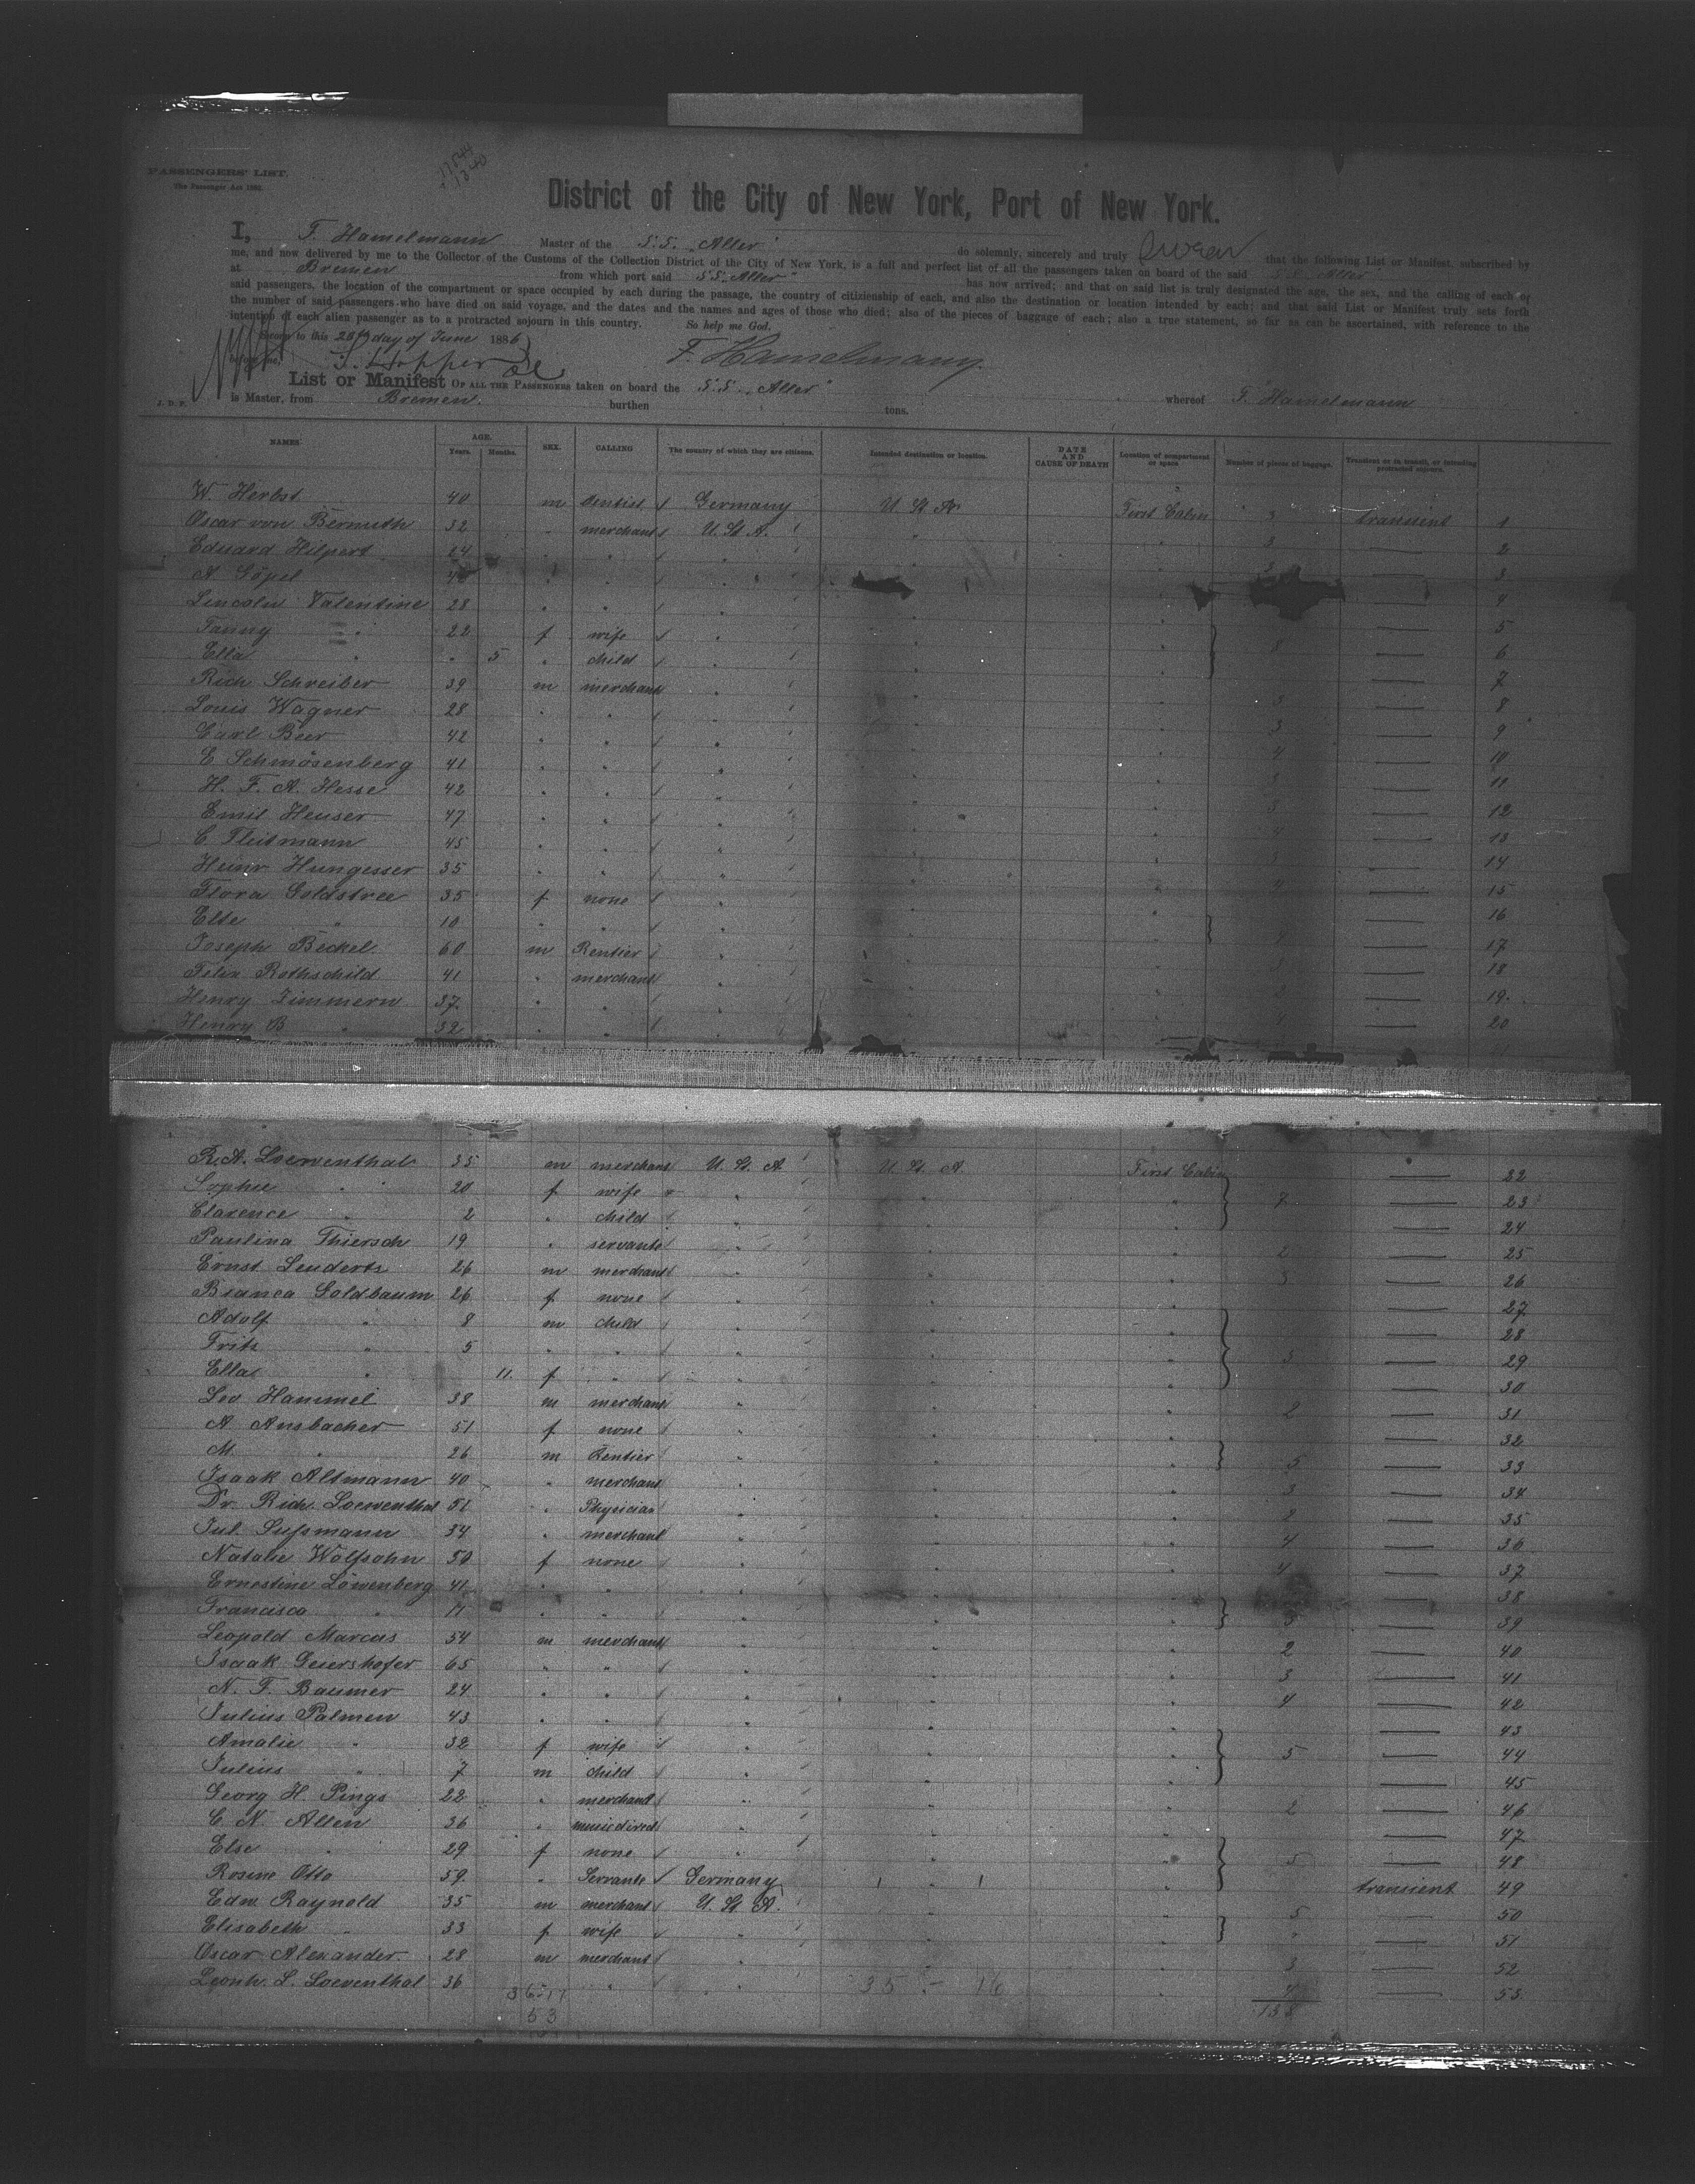 PASSENGERS' LIST.
The Passenger Act 1882.
District of the City of New York, Port of New York.
I, F. Hamelmann Master of the S.S. "Aller" do solemnly, sincerely and truly swear that the following List or Manifest, subscribed by
me, and now delivered by me to the Collector of the Customs of the Collection District of the City of New York, is a full and perfect list of all the passengers taken on board of the said S.S. "Aller"
at Bremen from which port said S.S. "Aller" has now arrived; and that on said list is truly designated the age, the sex, and the calling of each of
said passengers, the location of the compartment or space occupied by each during the passage, the country of citizenship of each, and also the destination or location intended by each; and that said List or Manifest truly sets forth
the number of said passengers who have died on said voyage, and the dates and the names and ages of those who died; also of the pieces of baggage of each; also a true statement, so far as can be ascertained, with reference to the
intention of each alien passenger as to a protracted sojourn in this country. So help me God.
Sworn to this 28th day of June 1886
before me, F. Hamelmann
List or Manifest OF ALL THE PASSENGERS taken on board the S.S. "Aller" whereof F. Hamelmann
is Master, from Bremen. burthen tons.
J. D. F.
NAMES AGE. Years. Months. SEX. CALLING The country of which they are citizens. Intended destination or location. DATE AND CAUSE OF DEATH Location of compartment or space Number of pieces of baggage. Transient or in transit, or intending protracted sojourn.
W. Herbst 40 m dentist Germany U. St. A. First Cabin 3 transient 1
Oscar von Bermuth 32 " merchant U. St. A. " " 3 — 2
Eduard Hilpert 24 " " " " " 3 — 3
A. Göpel " " " " " — 4
Lincoln Valentine 28 " " " " " — 5
Fanny " 22 f wife " " " 8 — 6
Ella " " 5 " child " " " — 7
Rich Schreiber 39 m merchant " " " 3 — 8
Louis Wagner 28 " " " " " 3 — 9
Carl Beer 42 " " " " " 4 — 10
E Schmösenberg 41 " " " " " 3 — 11
H. F. A. Hesse 42 " " " " " 3 — 12
Emil Heuser 47 " " " " " — 13
C. Fleitmann 45 " " " " " — 14
Heinr Hungesser 35 " " " " " 4 — 15
Flora Goldstree 35 f none " " " — 16
Else " 10 " " " " " — 17
Joseph Beckel 60 m Rentier " " " — 18
Felix Rothschild 41 " merchant " " " — 19
Henry Zimmern 37 " " " " " — 20
Henry B " 32 " " "
R. A. Loewenthal 35 m merchant U. St. A U. St. A. First Cabin — 22
Sophie " 20 f wife " " " 7 — 23
Clarence " 2 " child " " " — 24
Paulina Thiersch 19 " servante " " " 2 — 25
Ernst Leuderts 26 m merchant " " " 3 — 26
Bianca Goldbaum 26 f none " " " — 27
Adolf " 8 m child " " " — 28
Fritz " 5 " " " " " 5 — 29
Ella " 11 f " " " " — 30
Leo Hammel 38 m merchant " " " 2 — 31
A Ansbacher 51 f none " " " — 32
M. " 26 m Rentier " " " 5 — 33
Isaak Altmann 40 " merchant " " " 3 — 34
Dr. Rich. Loewenthal 51 " Physician " " " 2 — 35
Jul. Sussmann 34 " merchant " " " 4 — 36
Natalie Wolfsohn 50 f none " " " 4 — 37
Ernestine Löwenberg 41 " " " " " — 38
Francisca " 17 " " " " " 3 — 39
Leopold Marcus 54 m merchant " " " 2 — 40
Isaak Geiershofer 65 " " " " " 3 — 41
N. F. Baumer 24 " " " " " 4 — 42
Julius Palmen 43 " " " " " — 43
Amalie " 32 f wife " " " 5 — 44
Julius " 7 m child " " " — 45
Georg H. Pings 22 " merchant " " " 2 — 46
C N. Allen 36 " music direct " " " — 47
Else " 29 f none " " " 5 — 48
Rosine Otto 59 " Servante Germany " " transient 49
Edw. Raynold 35 m merchant U. St. A. " " 5 — 50
Elisabeth " 33 f wife " " " " — 51
Oscar Alexander 28 m merchant " " " 3 — 52
Leonh. L. Loewenthal 36 " " " " 4 — 53
36-17 35 - 16 188
53